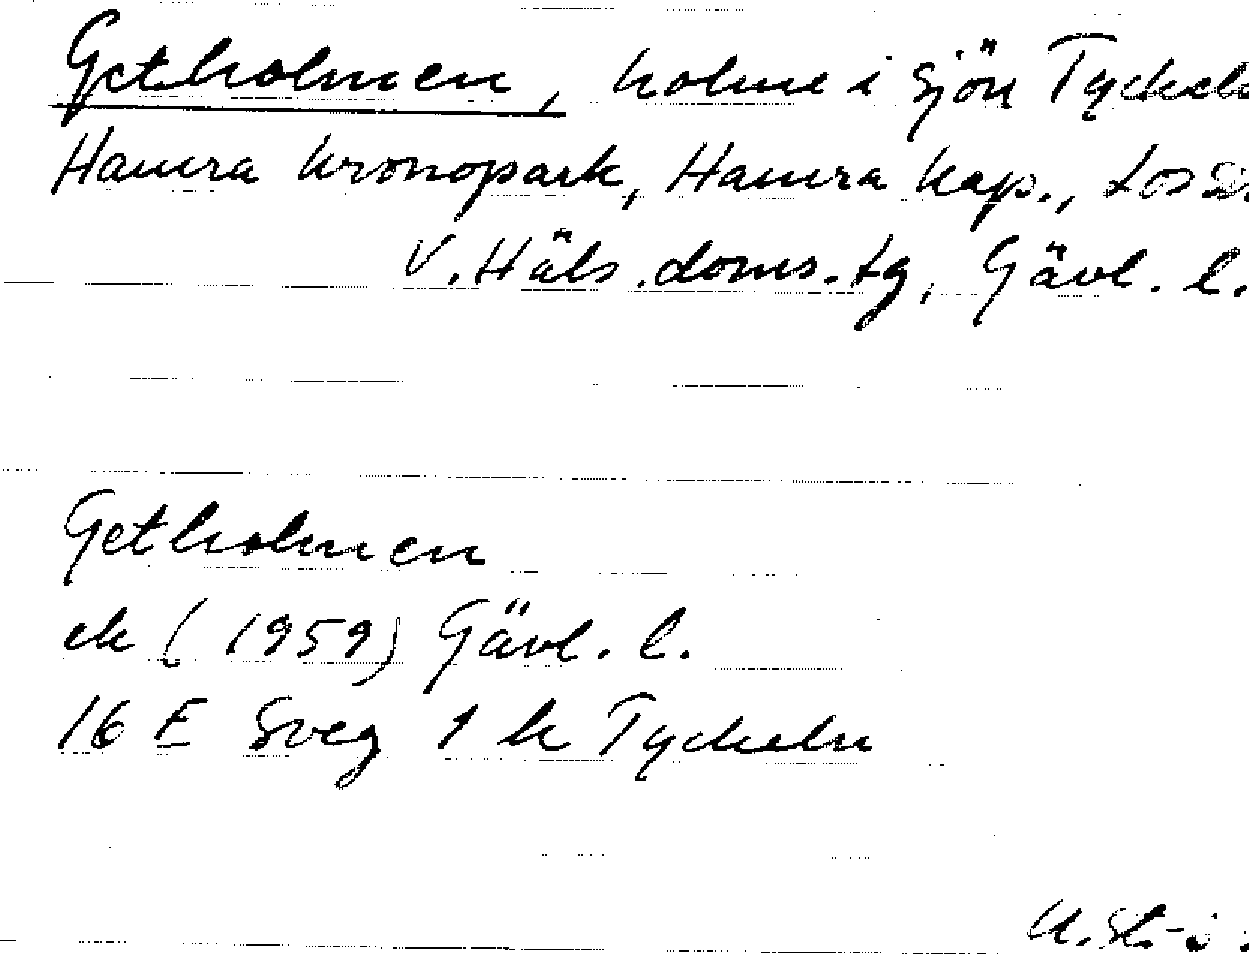 Getholmen, holme i sjön Tyckeln
Hamra kronopark, Hamra kap., Los s.
V. Häls. doms. tg, Gävl. l.
Getholmen
ek (1959) Gävl. l.
16 E Sveg 1 k Tyckeln